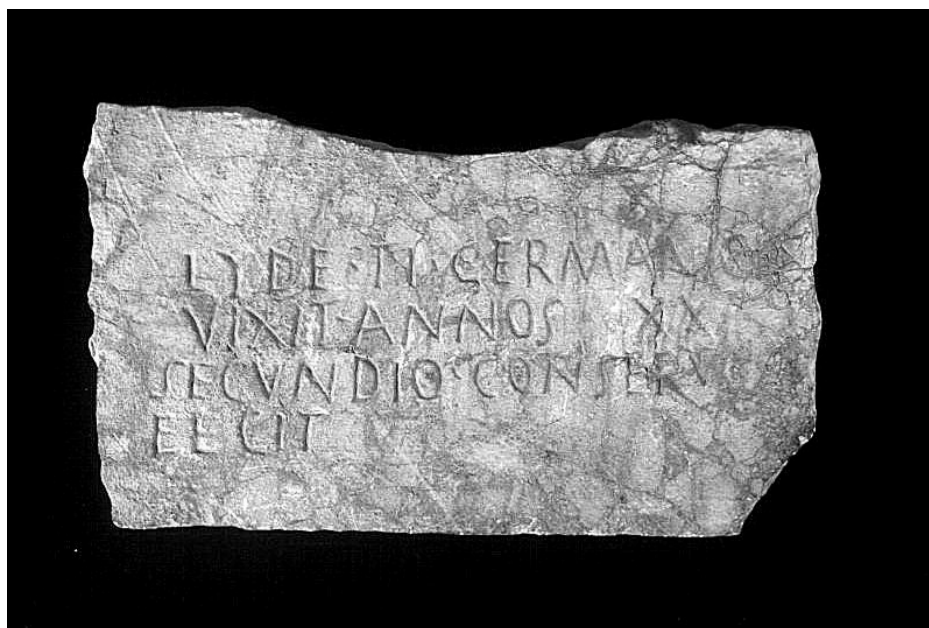 LYDE · TI · GERMANICI
VIXIT · ANNOS XX
SECVNDIO CONSERV
FECIT